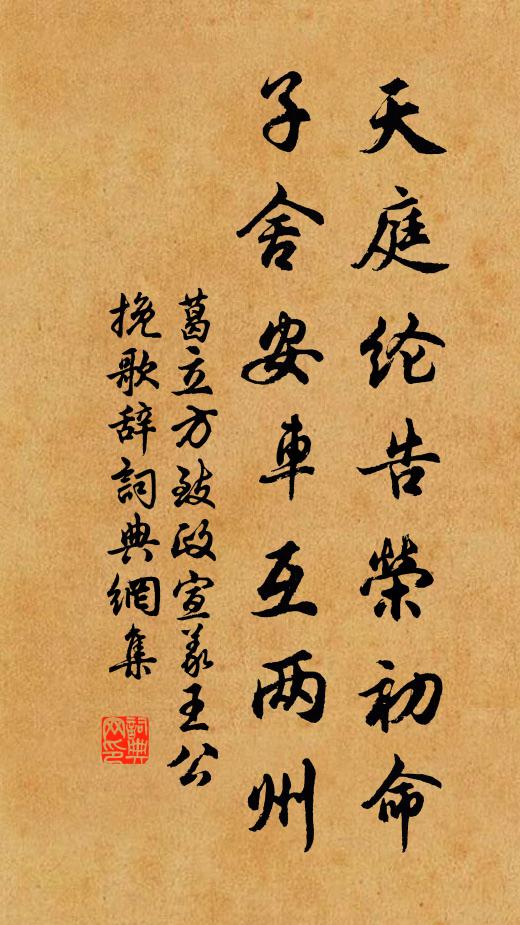 天庭纶告榮初命
子舍安車互两州
葛立方致政宣义王公
挽歌辞詞典網集
詞典网印